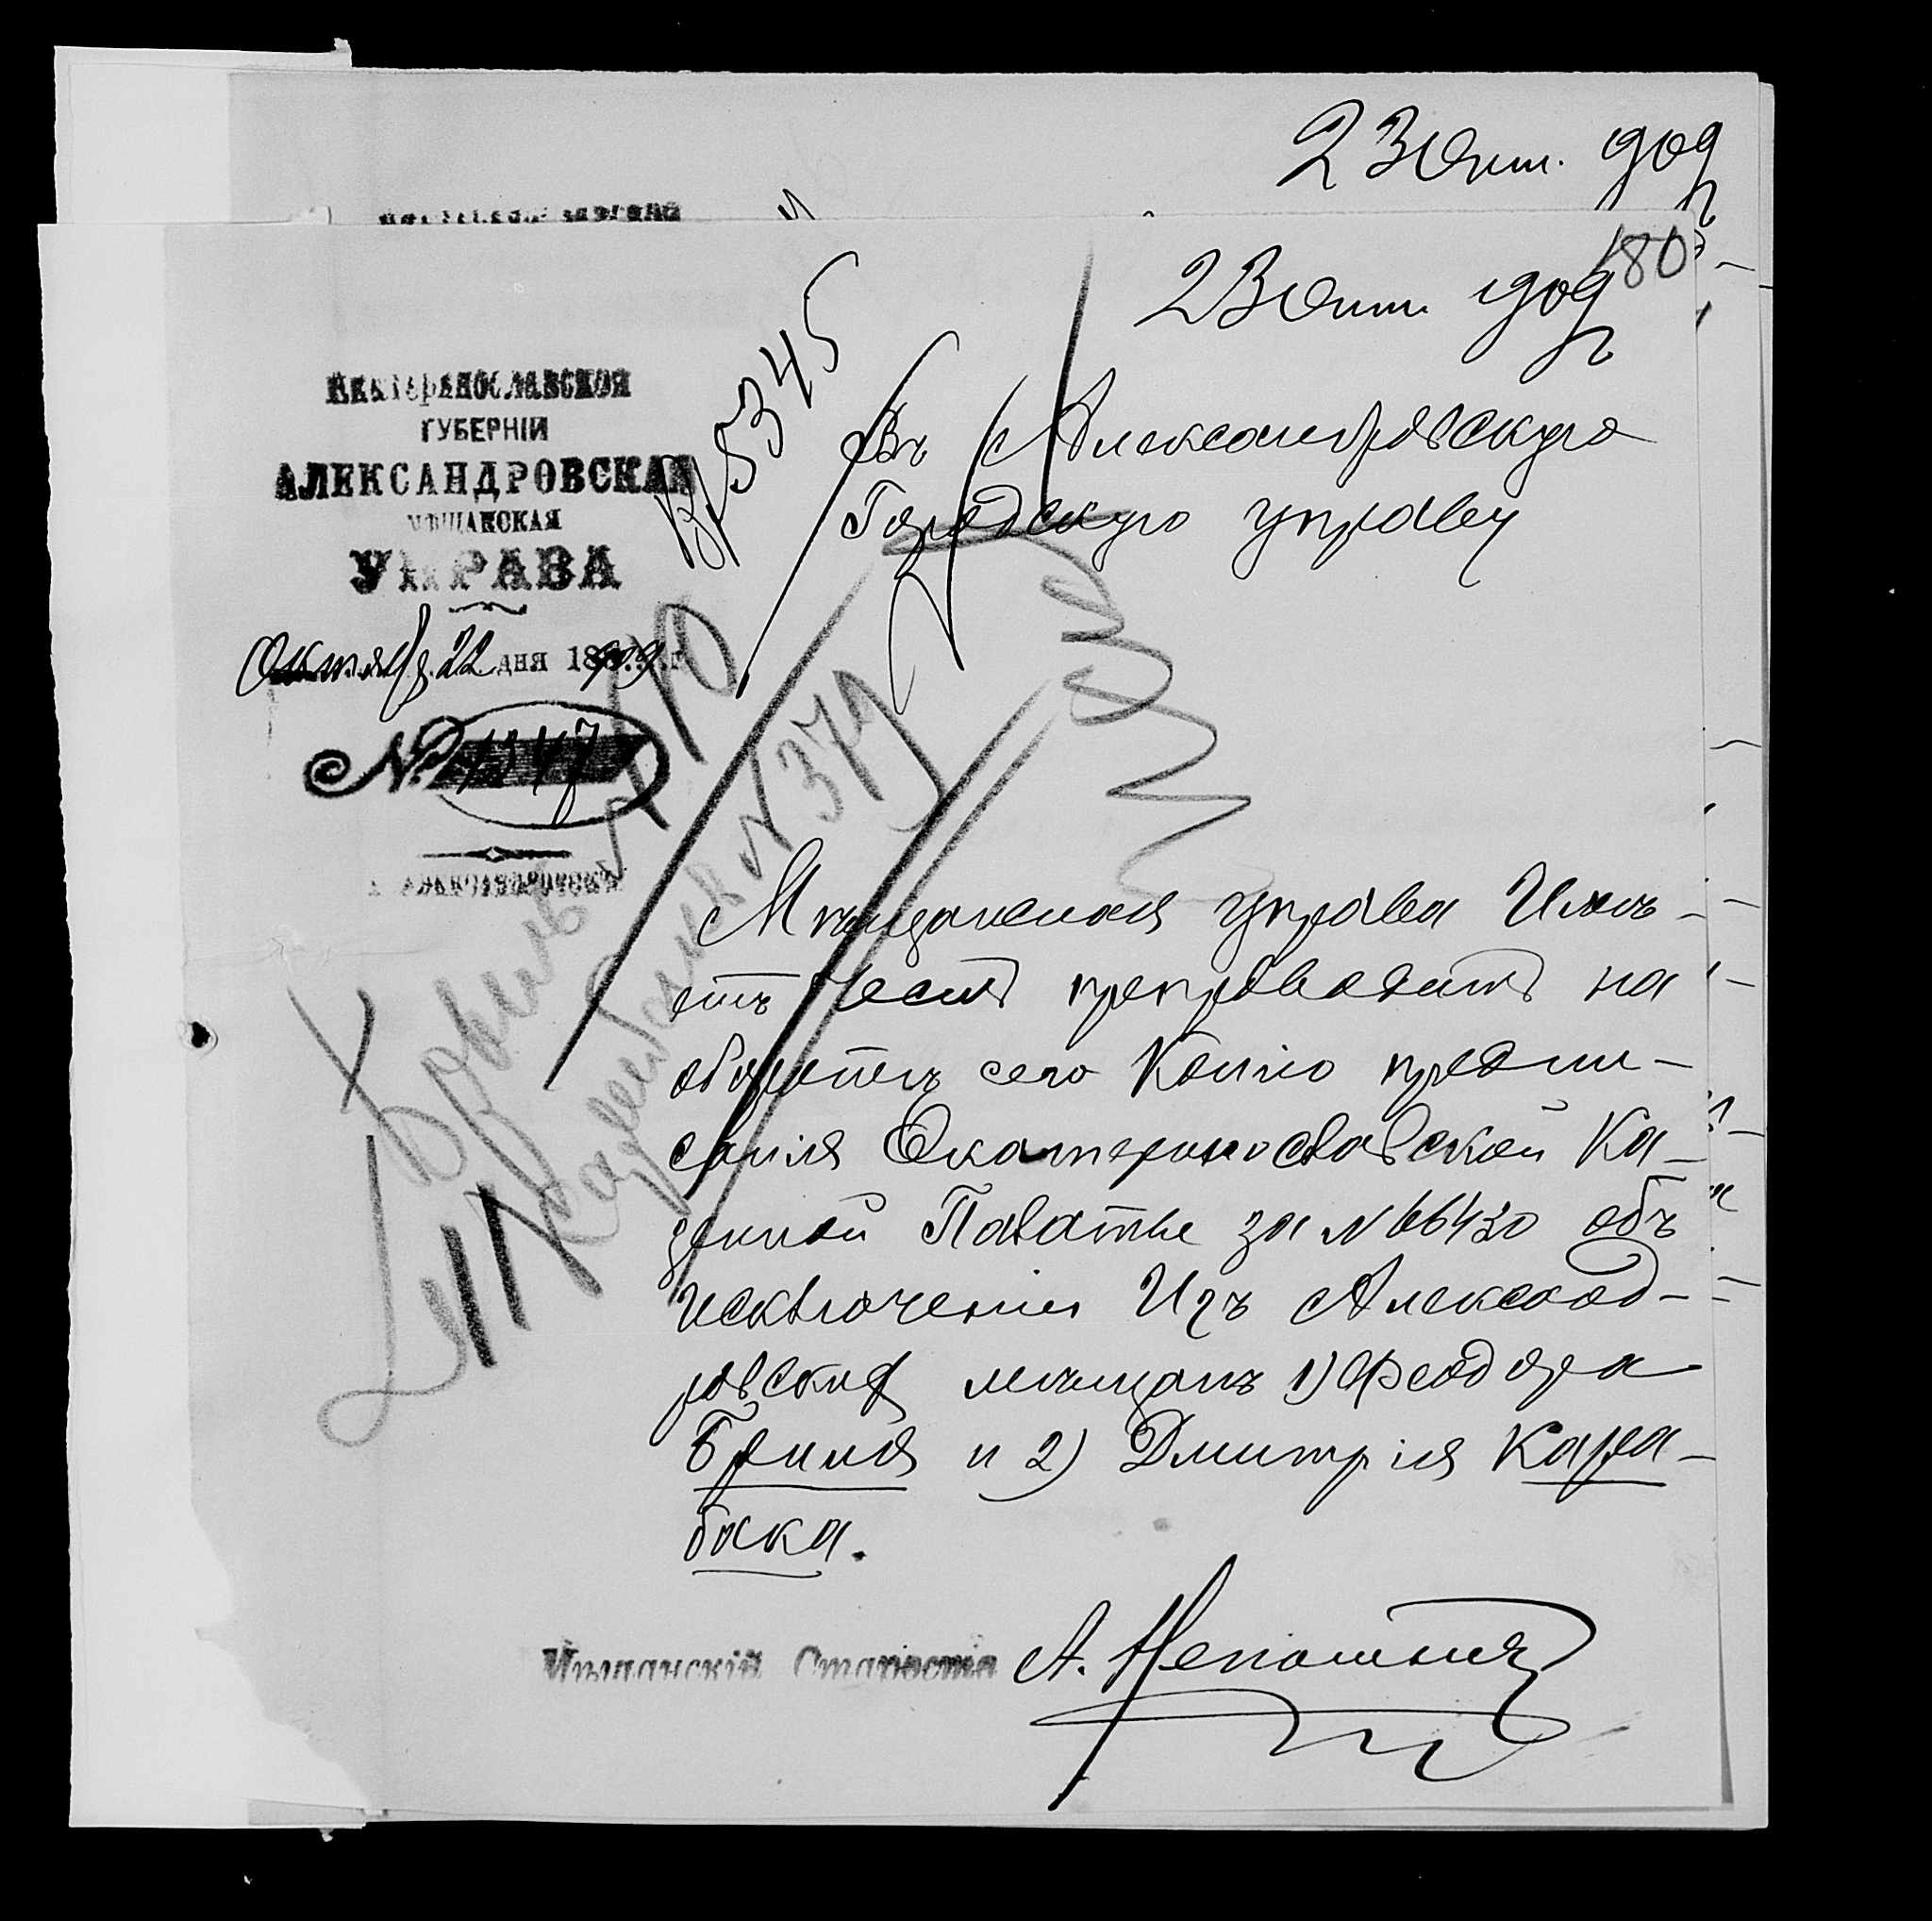 23 Окт. 909
180
23 Окт. 909 г
Вх 5345
Екатеринославской
ГУБЕРНІИ
АЛЕКСАНДРОВСКАЯ
МѢЩАНСКАЯ
УПРАВА
Октяб. 22 дня 1909 г.
№ 1347
г. АЛЕКСАНДРОВСКЪ
Въ Александровскую
Городскую управу
№ 379
Мѣщанская управа Имѣ-
етъ честь препроводить на
оборотѣ сего Копію предпи-
санія Екатеринославской Ка-
зенной Палаты за № 66430 объ
исключеніи Изъ Александ-
ровских мѣщанъ 1) Феодора
и 2) Дмитрія Кара-
бака.
Мѣщанскій Староста А.